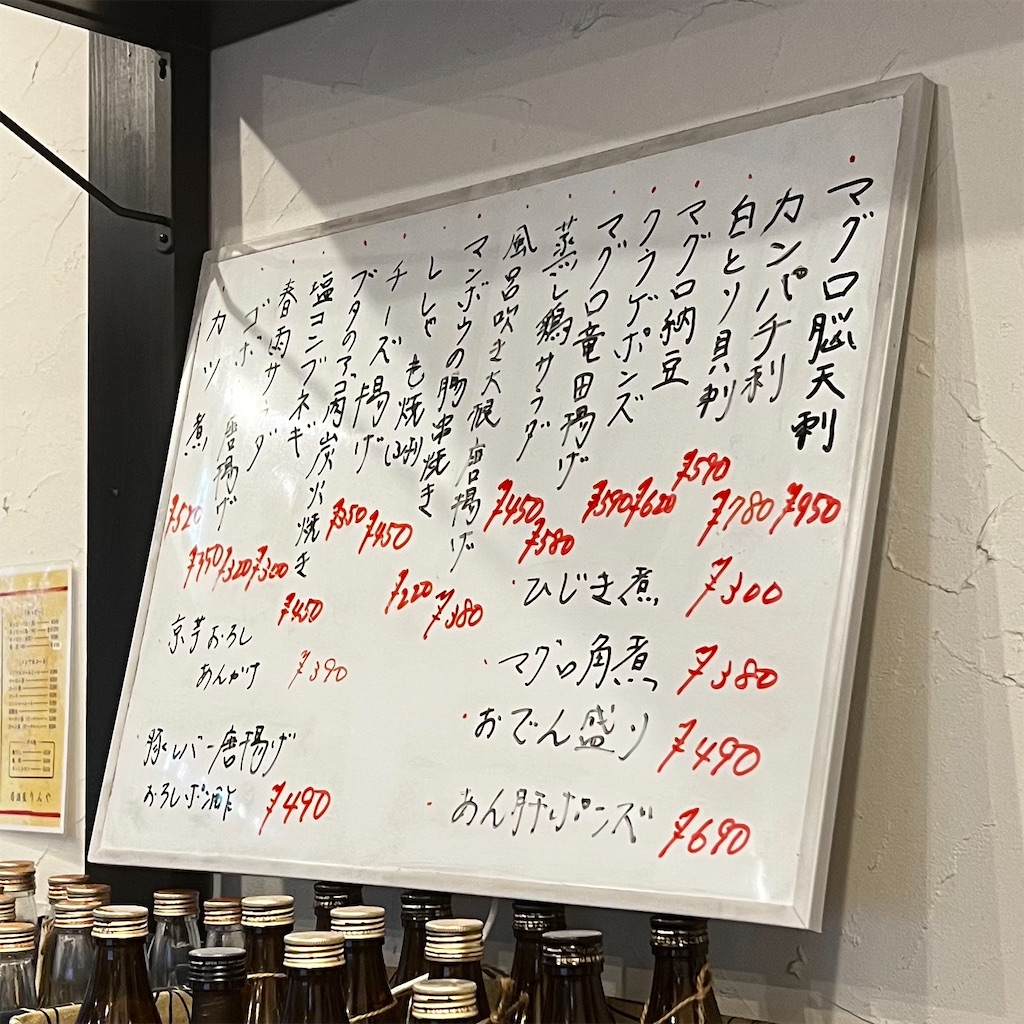 マグロ脳天刺 ¥950
カンパチ刺 ¥780
白とり貝刺 ¥590
マグロ納豆 ¥620
クラゲポンズ ¥590
マグロ竜田揚げ ¥580
蒸し鶏サラダ ¥450
風呂吹き大根唐揚げ ¥380
マンボウの腸串焼き ¥220
ししゃも焼 ¥450
チーズ揚げ ¥350
ブタのアゴ肉炭火焼き ¥450
塩コンブネギ ¥300
春雨サラダ ¥320
ゴボ 唐揚げ ¥350
カツ煮 ¥520
ひじき煮 ¥300
マグロ角煮 ¥380
おでん盛り ¥490
あん肝ポンズ ¥690
京芋おろし
あんかけ ¥390
豚レバー唐揚げ
おろしポン酢 ¥490